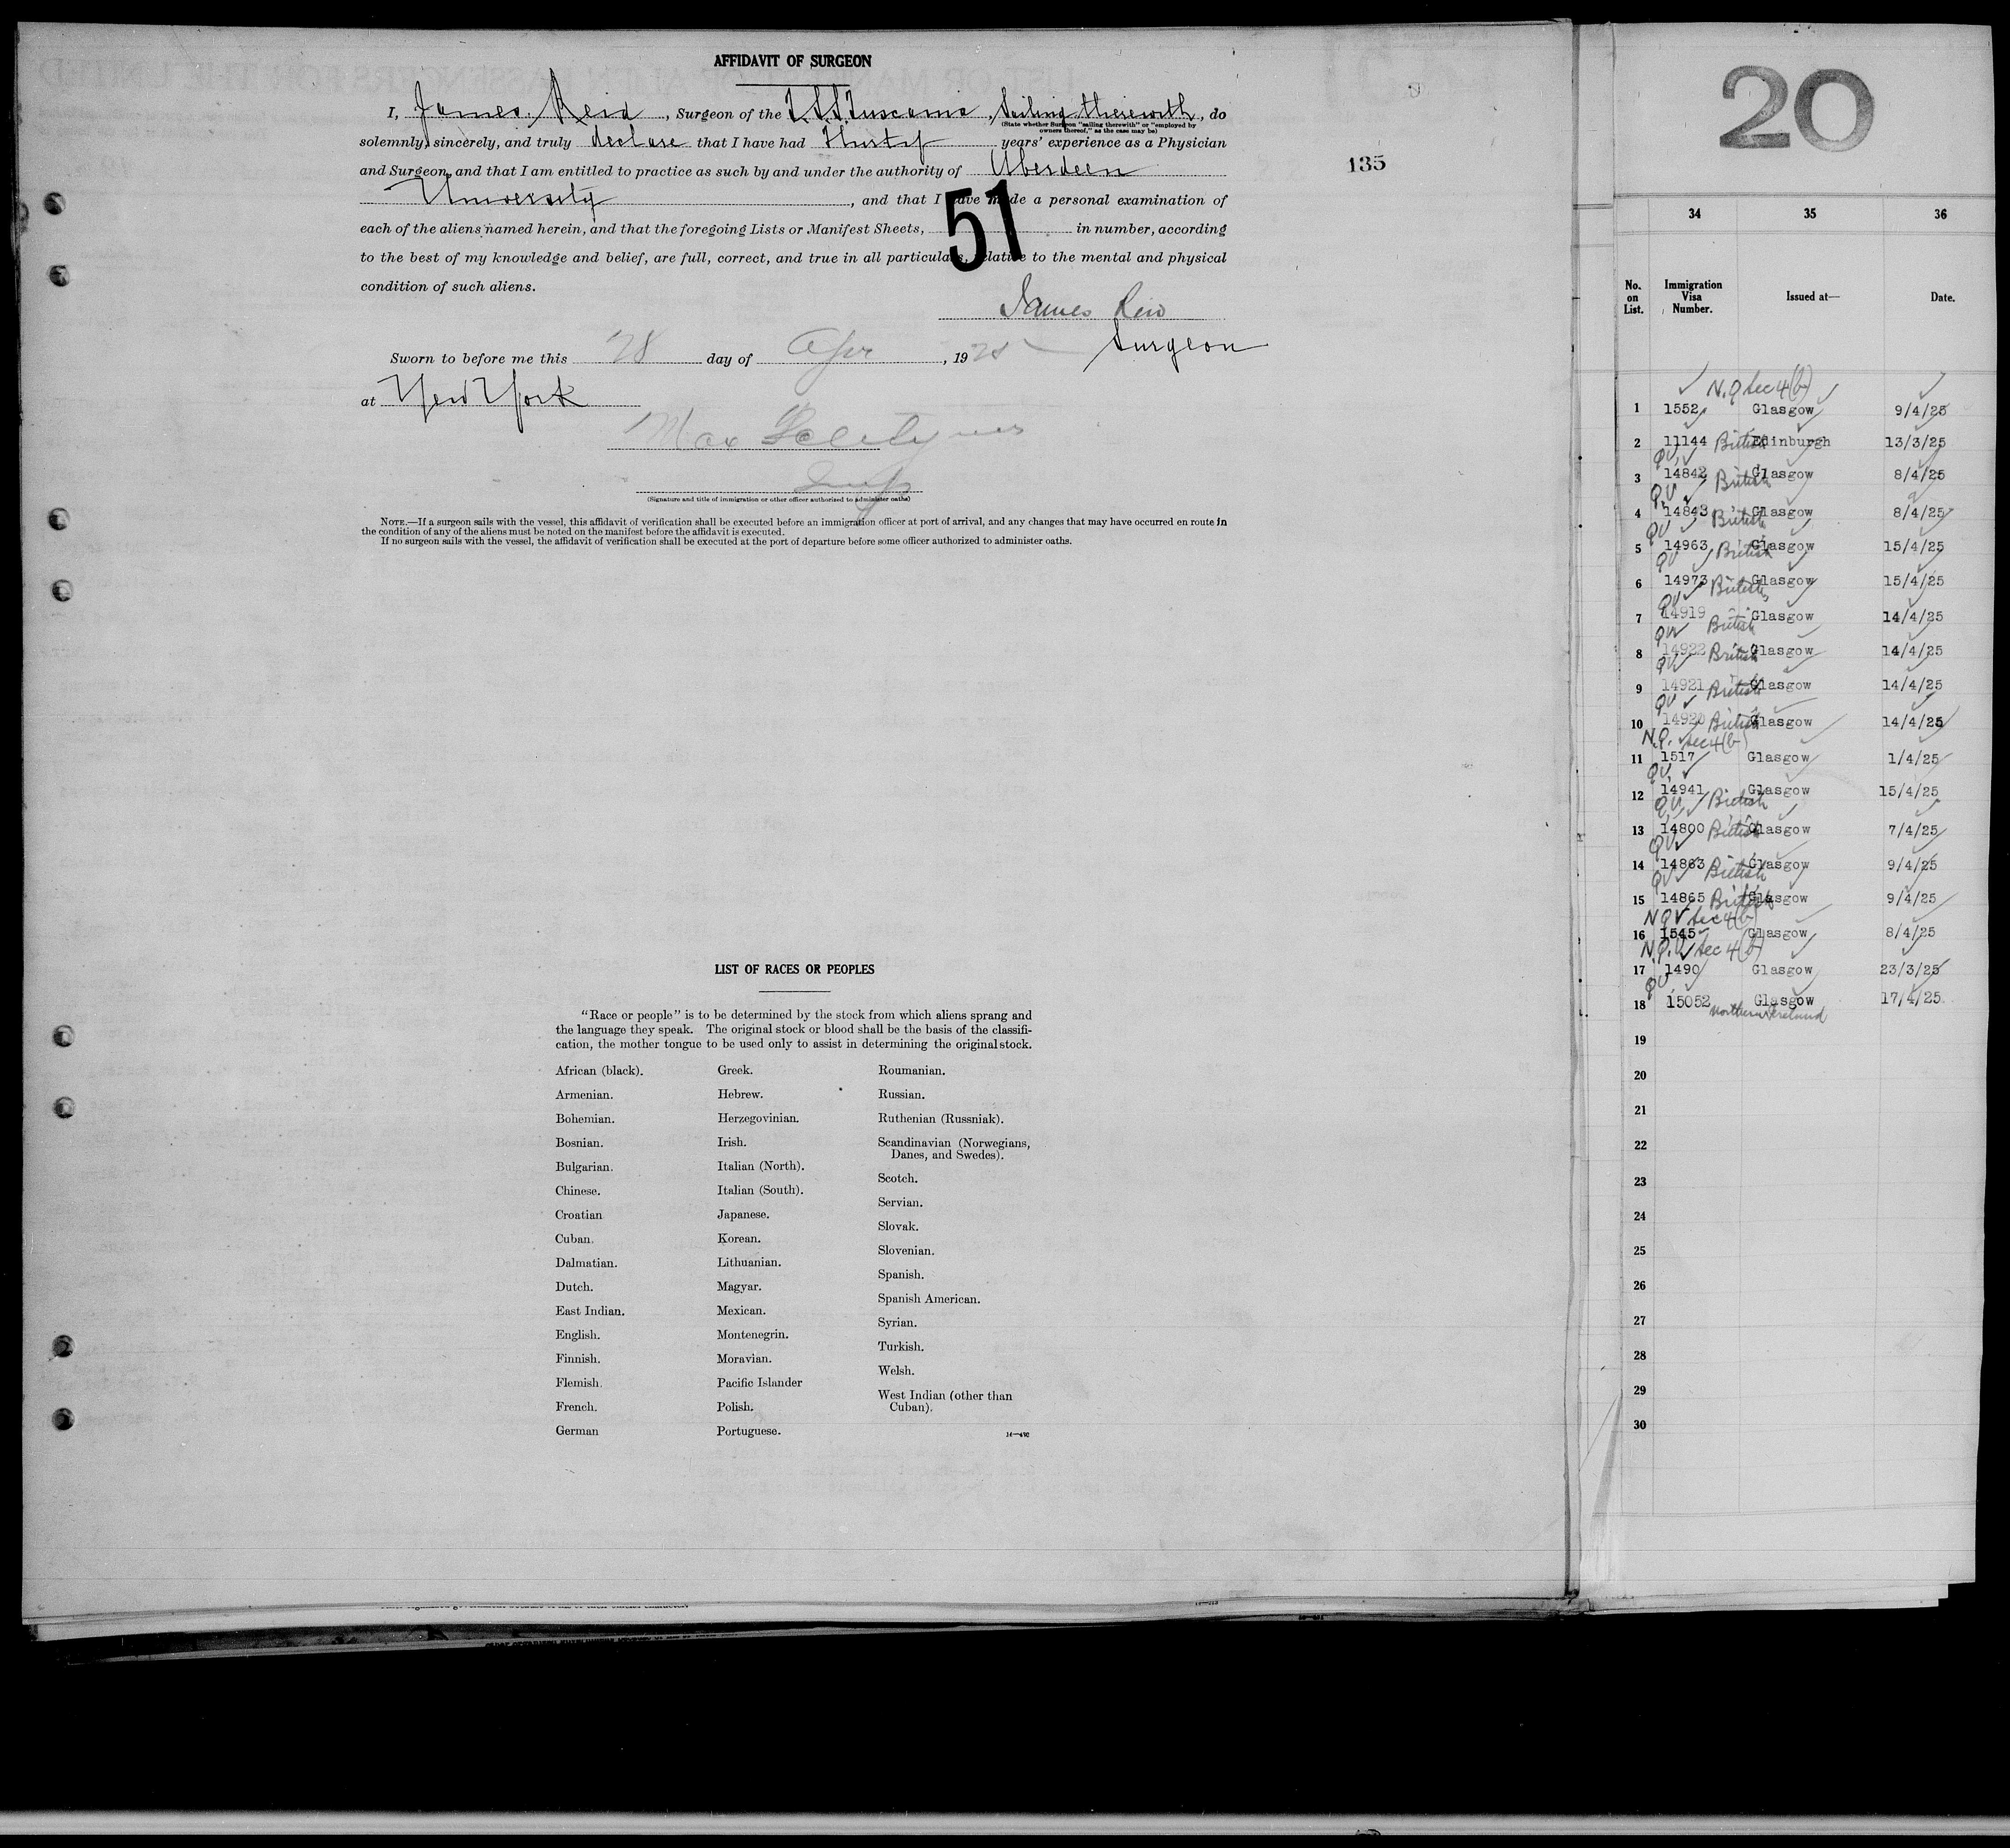 AFFIDAVIT OF SURGEON
I, James Reid, Surgeon of the T.S.S. Tuscania, Sailing therewith, do
(State whether Surgeon "sailing therewith" or "employed by
owners thereof," as the case may be)
solemnly, sincerely, and truly declare that I have had Thirty years' experience as a Physician
and Surgeon, and that I am entitled to practice as such by and under the authority of Aberdeen
University, and that I have made a personal examination of
each of the aliens named herein, and that the foregoing Lists or Manifest Sheets, 51 in number, according
to the best of my knowledge and belief, are full, correct, and true in all particulars, relative to the mental and physical
condition of such aliens.
James Reid
Surgeon
Sworn to before me this 28 day of Apr, 1925
at New York
Max
Insp
(Signature and title of immigration or other officer authorized to administer oaths)
NOTE.—If a surgeon sails with the vessel, this affidavit of verification shall be executed before an immigration officer at port of arrival, and any changes that may have occurred en route in
the condition of any of the aliens must be noted on the manifest before the affidavit is executed.
If no surgeon sails with the vessel, the affidavit of verification shall be executed at the port of departure before some officer authorized to administer oaths.
135
LIST OF RACES OR PEOPLES
"Race or people" is to be determined by the stock from which aliens sprang and
the language they speak. The original stock or blood shall be the basis of the classifi-
cation, the mother tongue to be used only to assist in determining the original stock.
African (black).
Armenian.
Bohemian.
Bosnian.
Bulgarian.
Chinese.
Croatian
Cuban.
Dalmatian.
Dutch.
East Indian.
English.
Finnish.
Flemish.
French.
German
Greek.
Hebrew.
Herzegovinian.
Irish.
Italian (North).
Italian (South).
Japanese.
Korean.
Lithuanian.
Magyar.
Mexican.
Montenegrin.
Moravian.
Pacific Islander
Polish.
Portuguese.
Roumanian.
Russian.
Ruthenian (Russniak).
Scandinavian (Norwegians,
Danes, and Swedes).
Scotch.
Servian.
Slovak.
Slovenian.
Spanish.
Spanish American.
Syrian.
Turkish.
Welsh.
West Indian (other than
Cuban).
20
34 35 36
No. on List. Immigration Visa Number. Issued at— Date.
N.Q sec 4(b)
1 1552 Glasgow 9/4/25
2 11144 British Edinburgh 13/3/25
QV
3 14842 British Glasgow 8/4/25
QV
4 14843 British Glasgow 8/4/25
QV
5 14963 British Glasgow 15/4/25
QV
6 14973 British Glasgow 15/4/25
QV
7 14919 British Glasgow 14/4/25
QV
8 14922 British Glasgow 14/4/25
QV
9 14921 British Glasgow 14/4/25
QV
10 14920 British Glasgow 14/4/25
N.Q. sec 4(b)
11 1517 Glasgow 1/4/25
QV
12 14941 British Glasgow 15/4/25
QV
13 14800 British Glasgow 7/4/25
QV
14 14863 British Glasgow 9/4/25
QV
15 14865 British Glasgow 9/4/25
NQV sec 4(b)
16 1545 Glasgow 8/4/25
N.Q.V sec 4(b)
17 1490 Glasgow 23/3/25
QV
18 15052 Glasgow 17/4/25
Northern Ireland
19
20
21
22
23
24
25
26
27
28
29
30